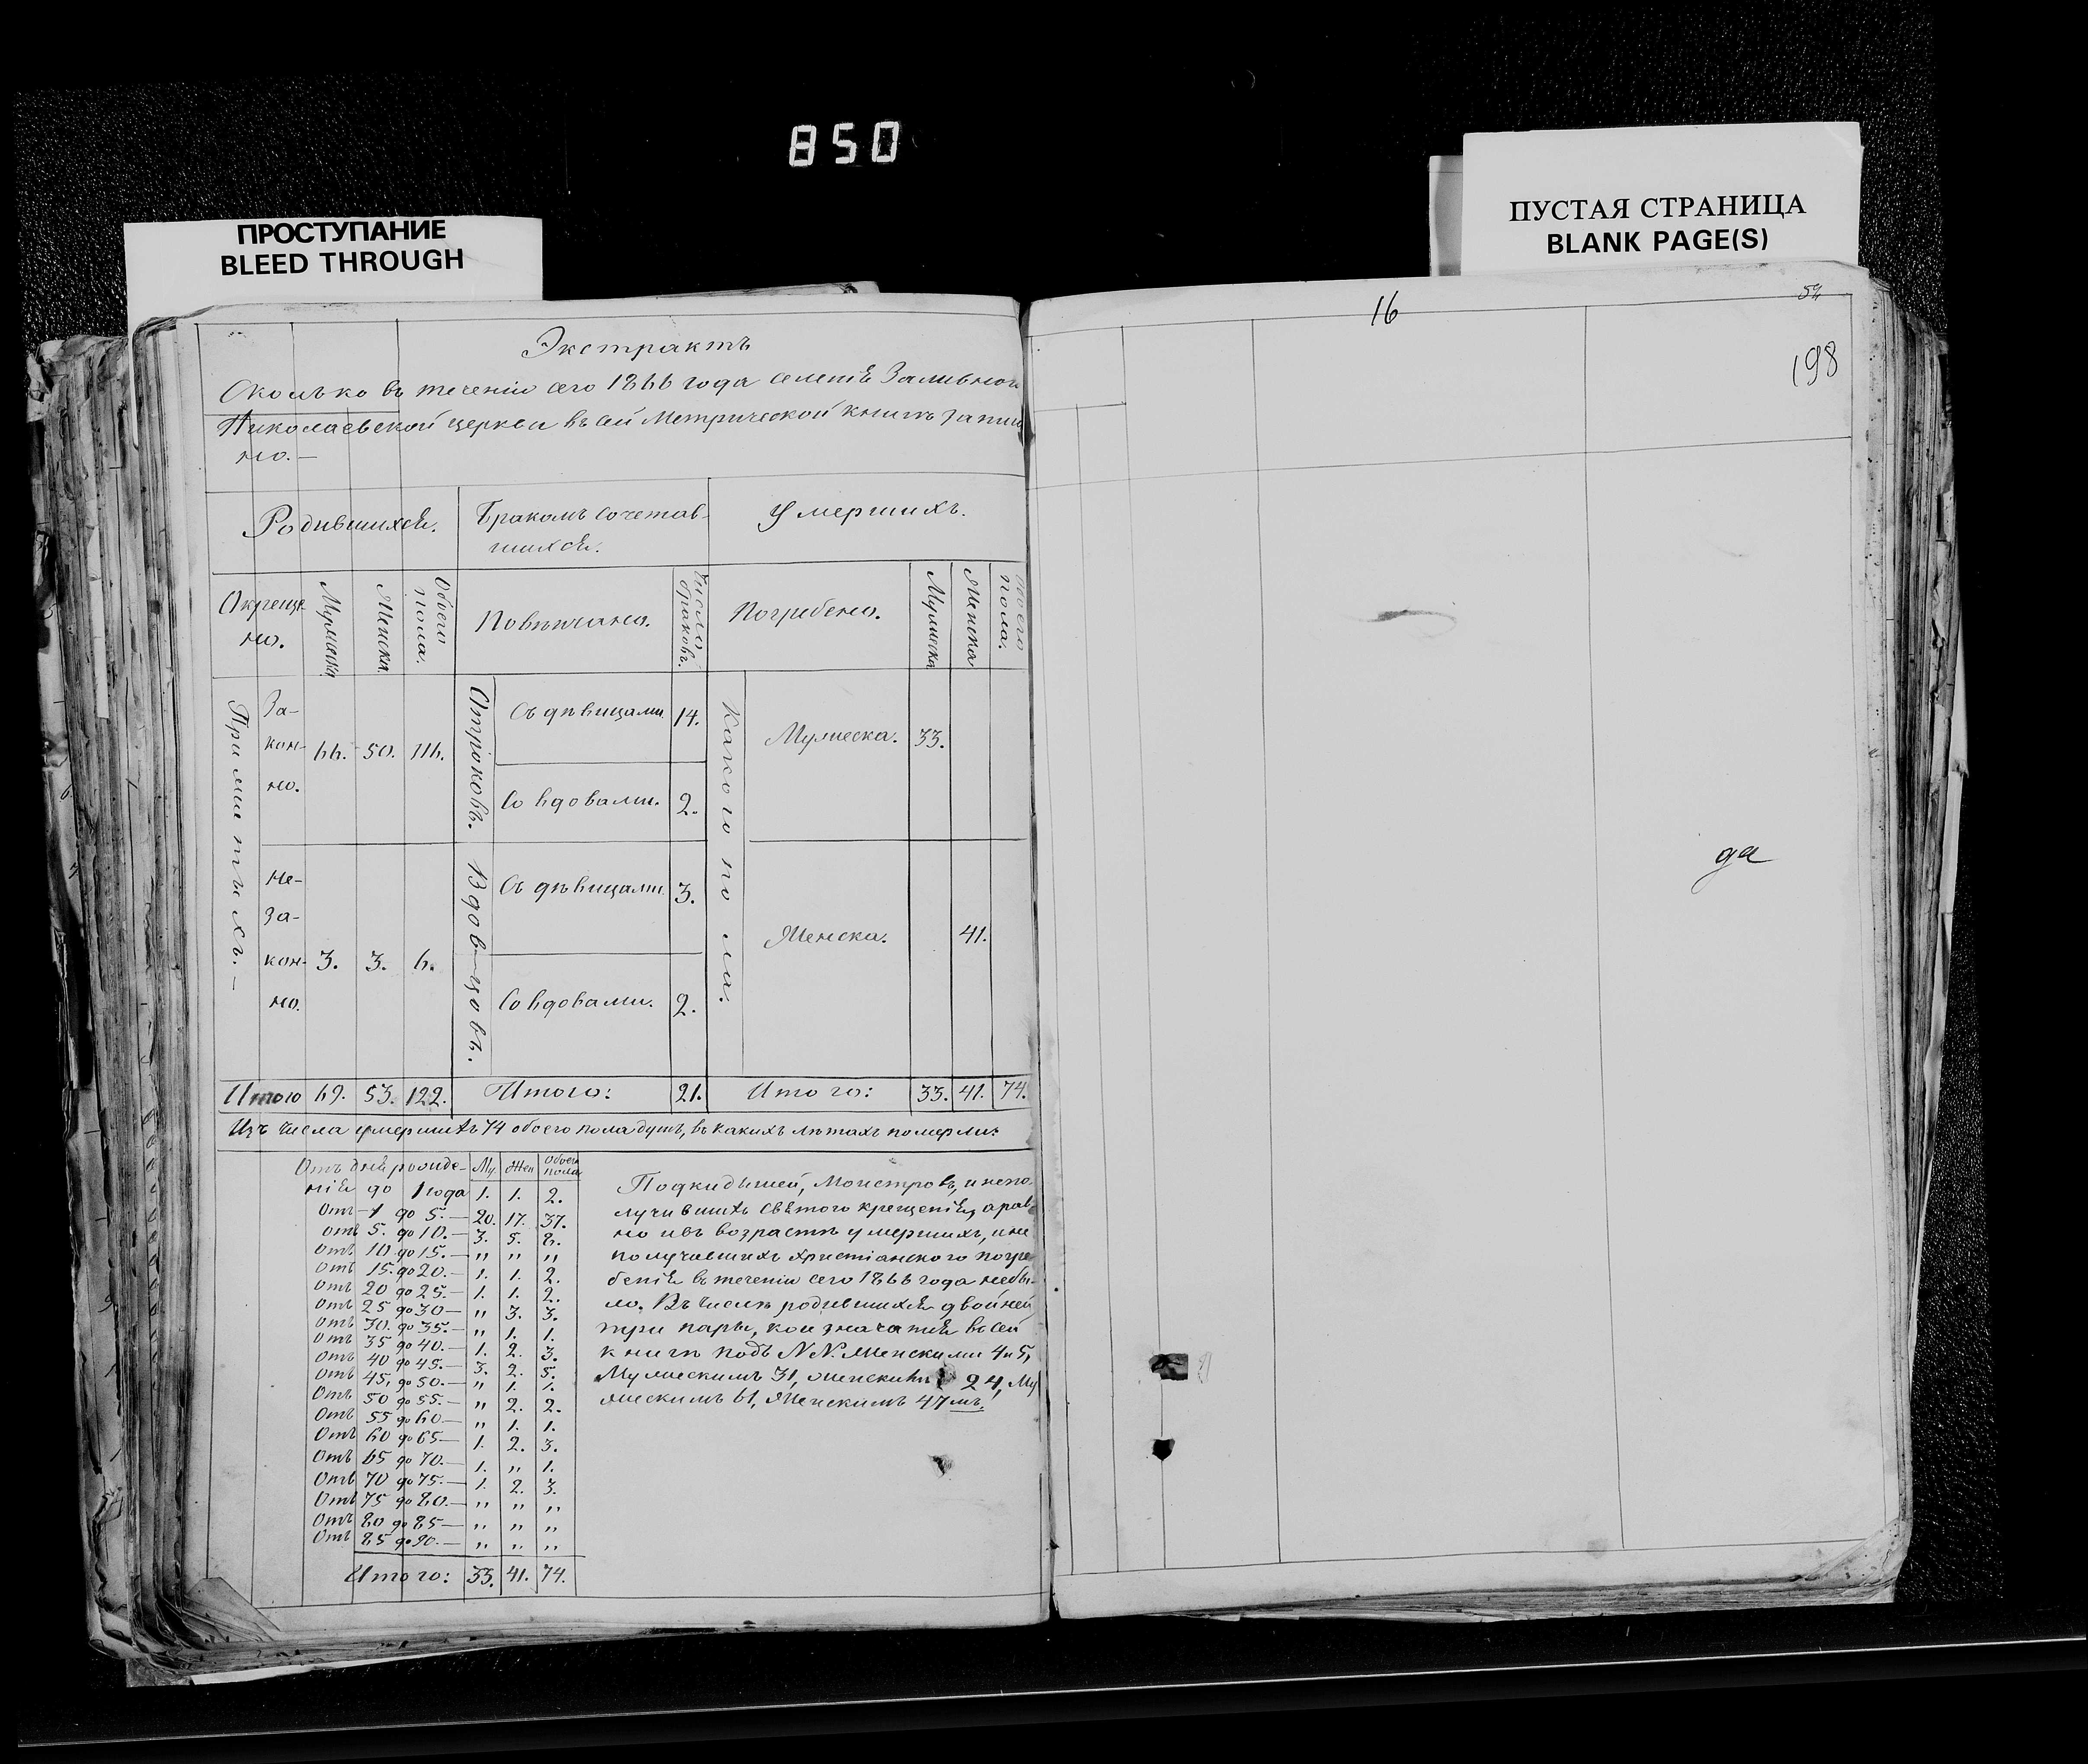 850
ПРОСТУПАНИЕ
BLEED THROUGH
ПУСТАЯ СТРАНИЦА
BLANK PAGE(S)
Экстрактъ
Сколько въ теченіи сего 1866 года селенія Заливной
Николаевской церкви въ сей Метрической книгѣ запи
но.—
Родившихся. Бракомъ сочетав- Умершихъ.
шихся.
Окреще Мужеска Женска Обоего пола. Повѣнчано. Число браковъ. Погребено. Мужеска Женска Обоего пола.
но.
Прижитыхъ.—
За-
кон- 66. 50. 116.
но.
Не-
за-
кон- 3. 3. 6.
но.
Отроковъ. Съ дѣвицами. 14.
Со вдовами. 2.
Вдовцовъ. Съ дѣвицами. 3.
Со вдовами. 2.
Какого пола:
Мужеска. 33.
Женска. 41.
Итого 69. 53. 122. Итого: 21. Итого: 33. 41. 74.
Изъ числа умершихъ 74 обоего пола душъ, въ какихъ лѣтахъ померли:
Отъ дня рожде- Му. Жен Обоего пола
нія до 1 года 1. 1. 2.
Отъ 1 до 5.— 20. 17. 37.
Отъ 5. до 10.— 3. 5. 8.
Отъ 10 до 15.— " " "
Отъ 15. до 20.— 1. 1. 2.
Отъ 20 до 25.— 1. 1. 2.
Отъ 25 до 30— " 3. 3.
Отъ 30. до 35.— " 1. 1.
Отъ 35 до 40.— 1. 2. 3.
Отъ 40 до 45.— 3. 2. 5.
Отъ 45, до 50.— " 1. 1.
Отъ 50 до 55.— " 2. 2.
Отъ 55 до 60— " 1. 1.
Отъ 60 до 65— 1. 2. 3.
Отъ 65 до 70.— 1. " 1.
Отъ 70 до 75.— 1. 2. 3.
Отъ 75 до 80.— " " "
Отъ 80 до 85— " " "
Отъ 85 до 90.— " " "
Итого: 33. 41. 74.
Подкидышей, Монстровъ, и непо
лучившихъ Святого крещенія, а рав
но и въ возрастѣ умершихъ, и не
получавшихъ Христіанского погре
бенія въ теченіи сего 1866 года небы-
ло. Въ числѣ родившихся двойней
три пары, кои значатся въ сей
книгѣ подъ N N. Женскими 4 и 5,
Мужескимъ 31, женскимъ 24, Му
жескимъ 61, Женскимъ 47мъ.
16
198
да